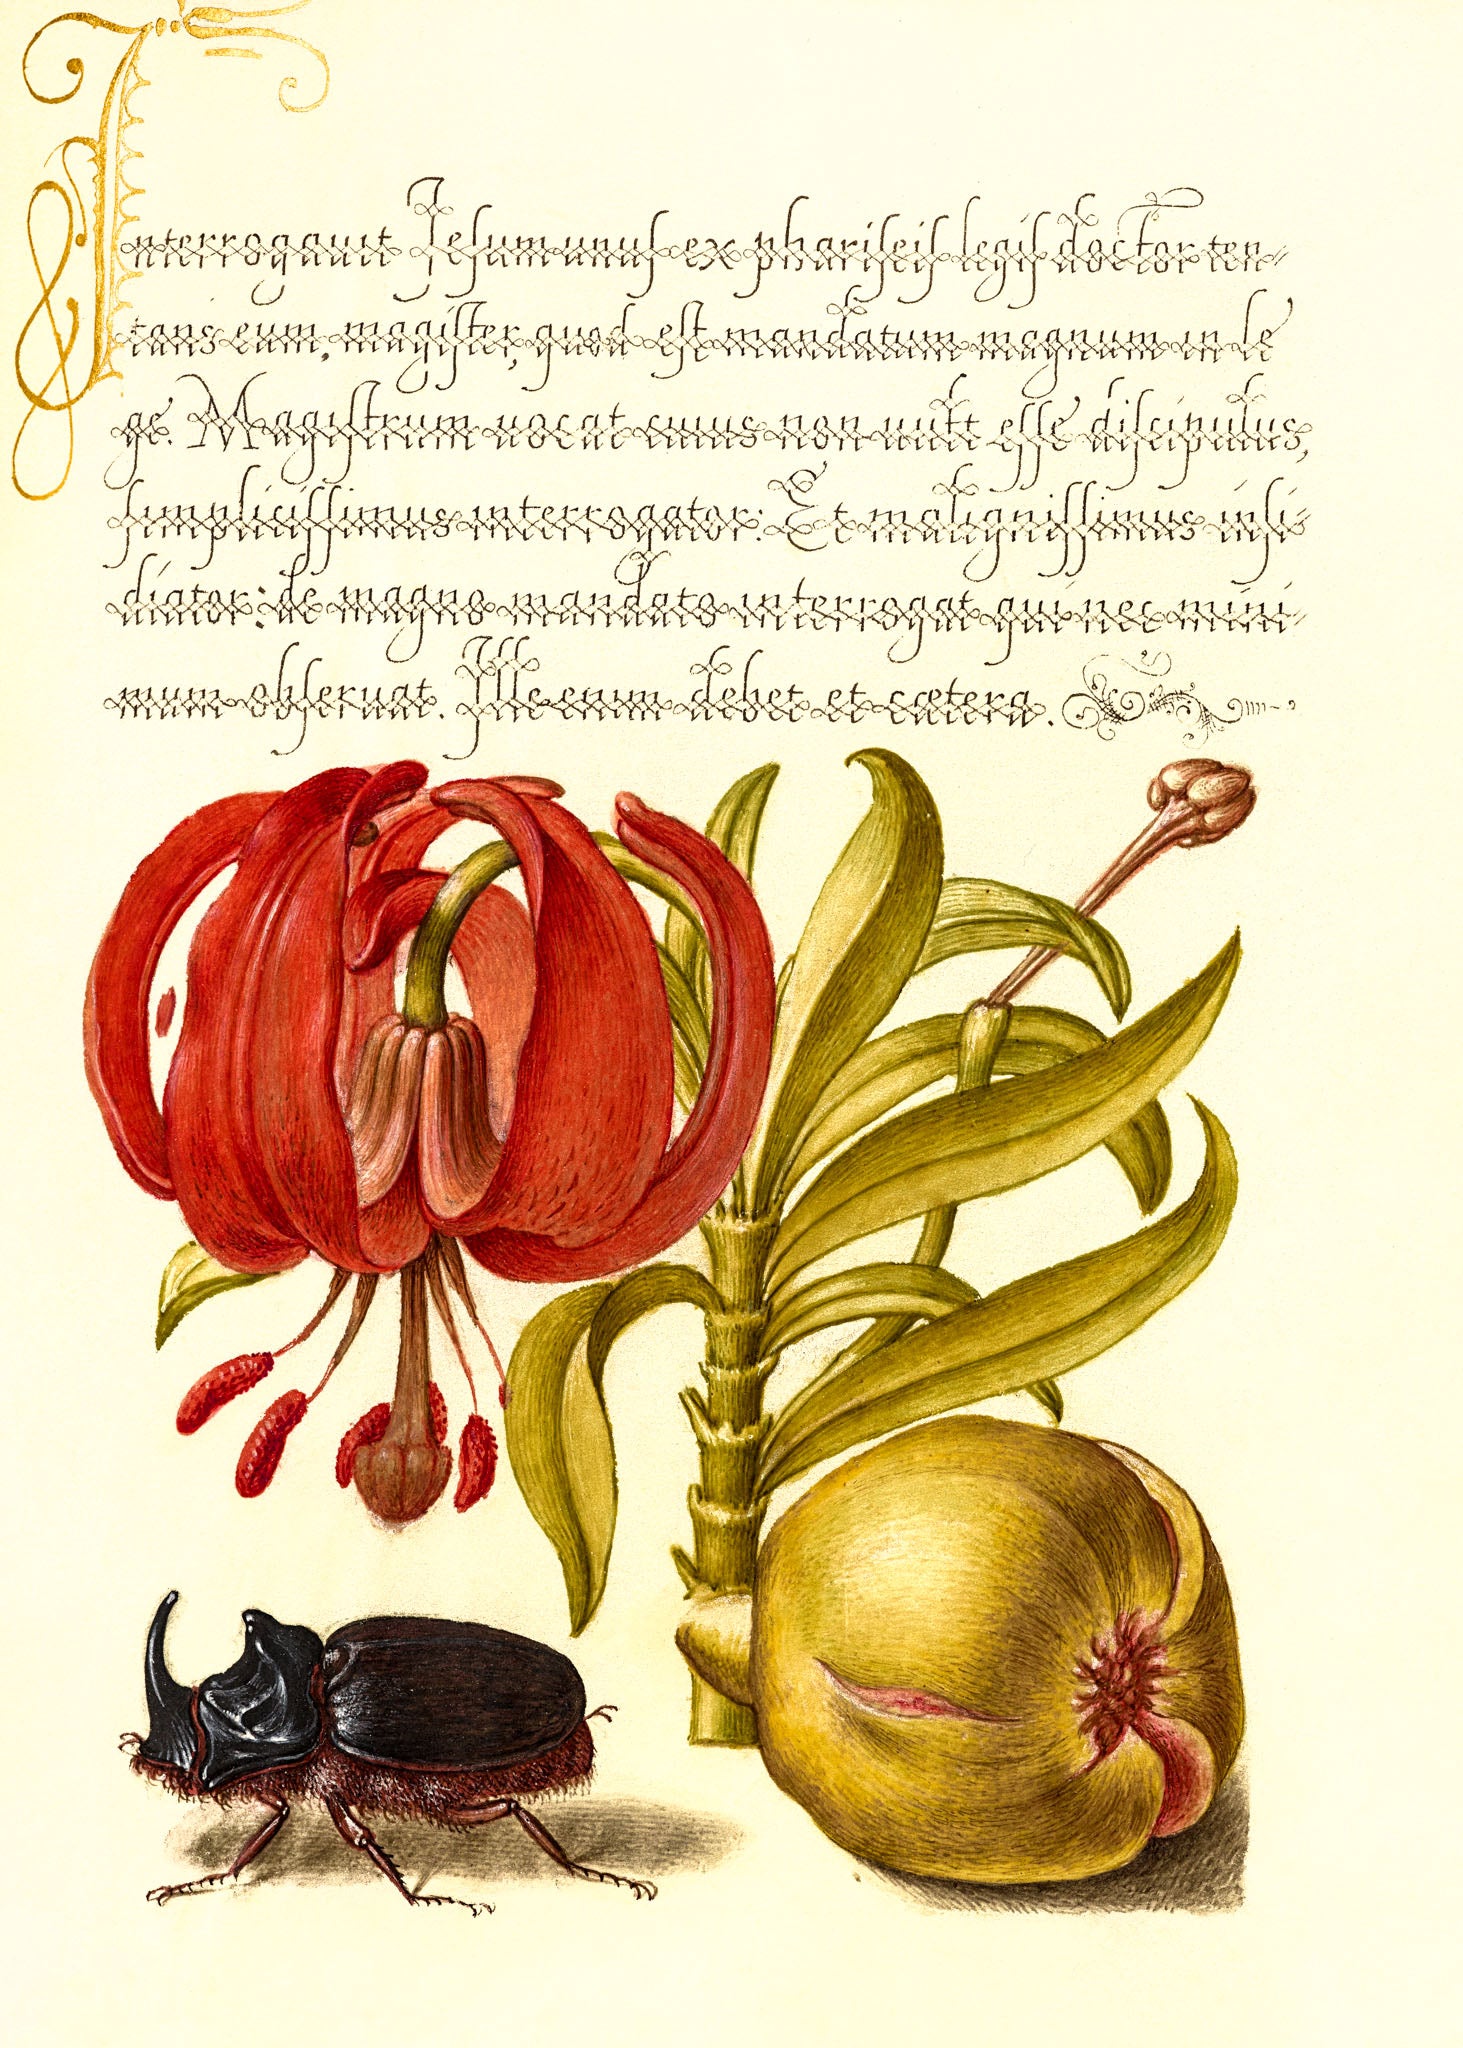 Interrogauit Iesum unus ex phariseis legis doctor ten-
tans eum, magister, quod est mandatum magnum in le
ge. Magistrum uocat cuius non uult esse discipulus,
simplicissimus interrogator: Et malignissimus insi-
diator: de magno mandato interrogat qui nec mini-
mum obseruat. Ille enim debet et cætera.